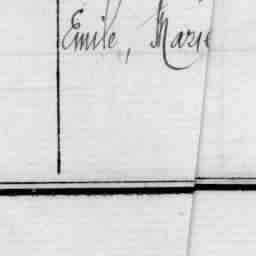 Emile, Marie